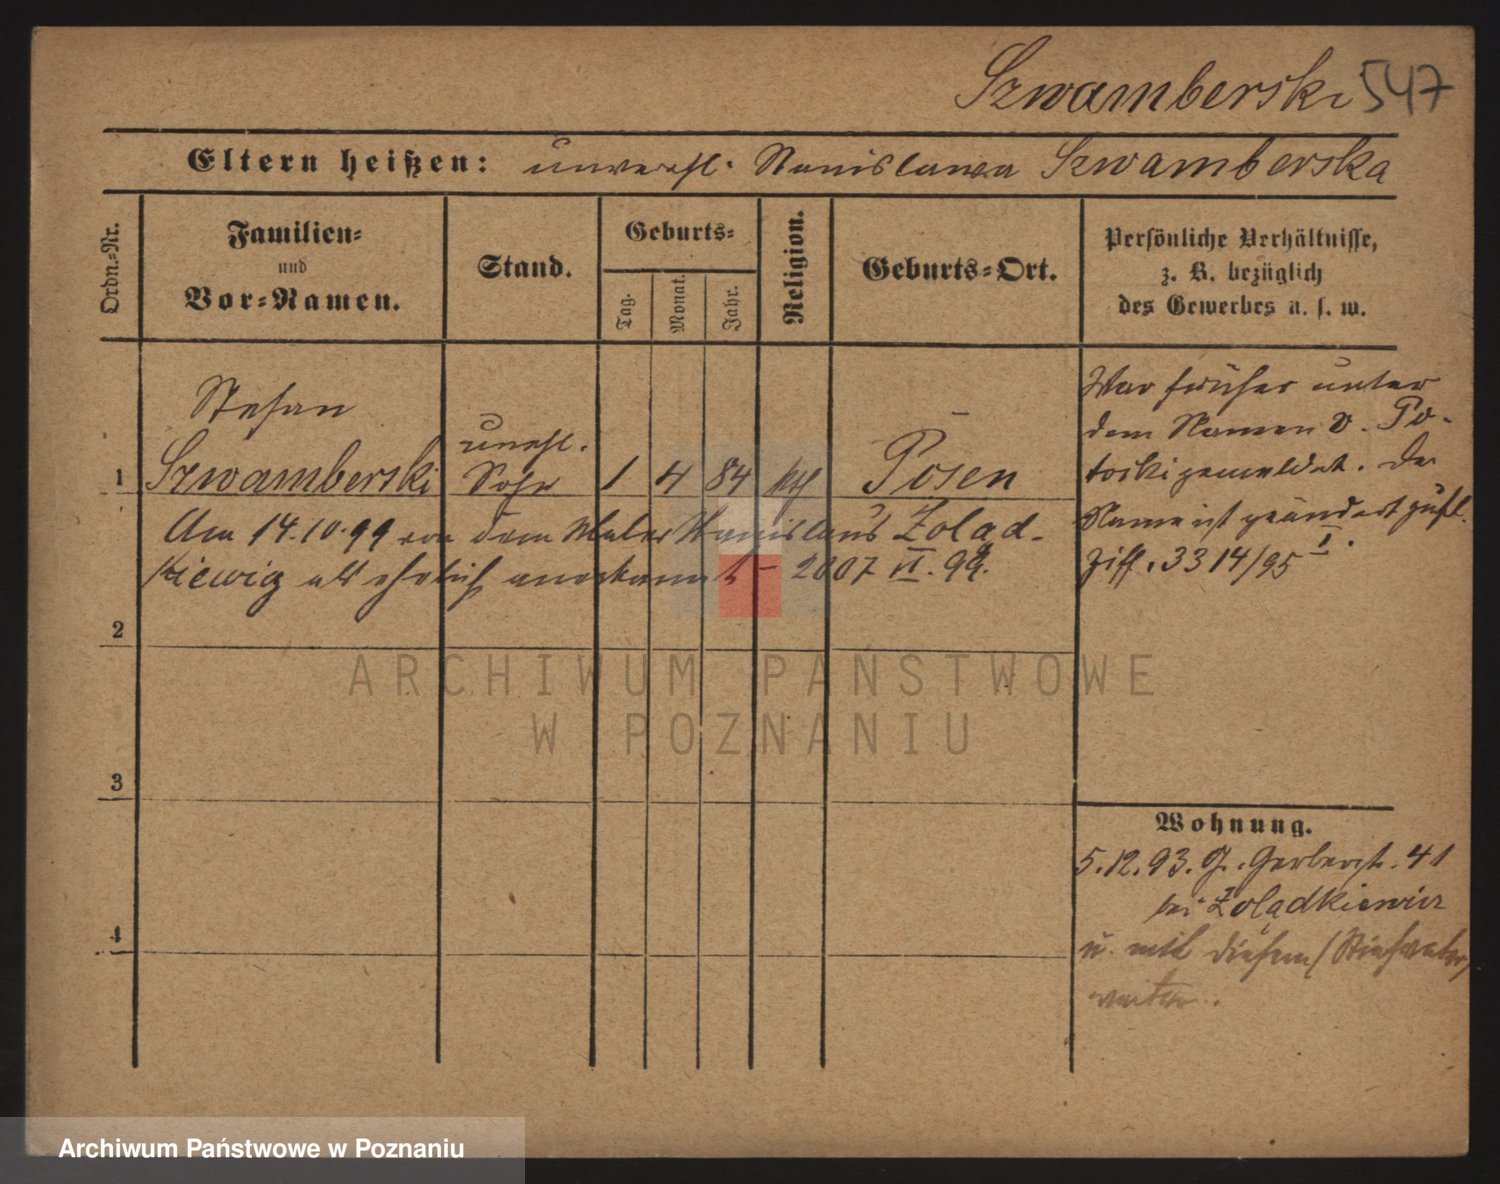 Szwamberski 547
Eltern heißen: unverehl. Stanislawa Szwamberska
Ordn.-Nr.
Familien-
und
Vor-Namen.
Stand.
Geburts-
Tag.
Monat.
Jahr.
Religion.
Geburts-Ort.
Persönliche Verhältnisse,
z. B. bezüglich
des Gewerbes u. s. w.
1
Stefan
Szwamberski
unehl.
Sohn
1 4 84 kth
Posen
Am 14.10.99 von dem Maler Stanislaus Zolad-
kiewicz als ehelich anerkannt - 2007 VI. 99.
War früher unter
dem Namen v. Po-
tocki gemeldet. Der
Name ist geändert zufl.
Ziff. 3314/95 I.
2
3
4
Wohnung.
5.12.93. G. Gerberst. 41
bei Zoladkiewicz
u. mit diesem (Stiefvater)
weiter.
ARCHIWUM PAŃSTWOWE
W POZNANIU
Archiwum Państwowe w Poznaniu